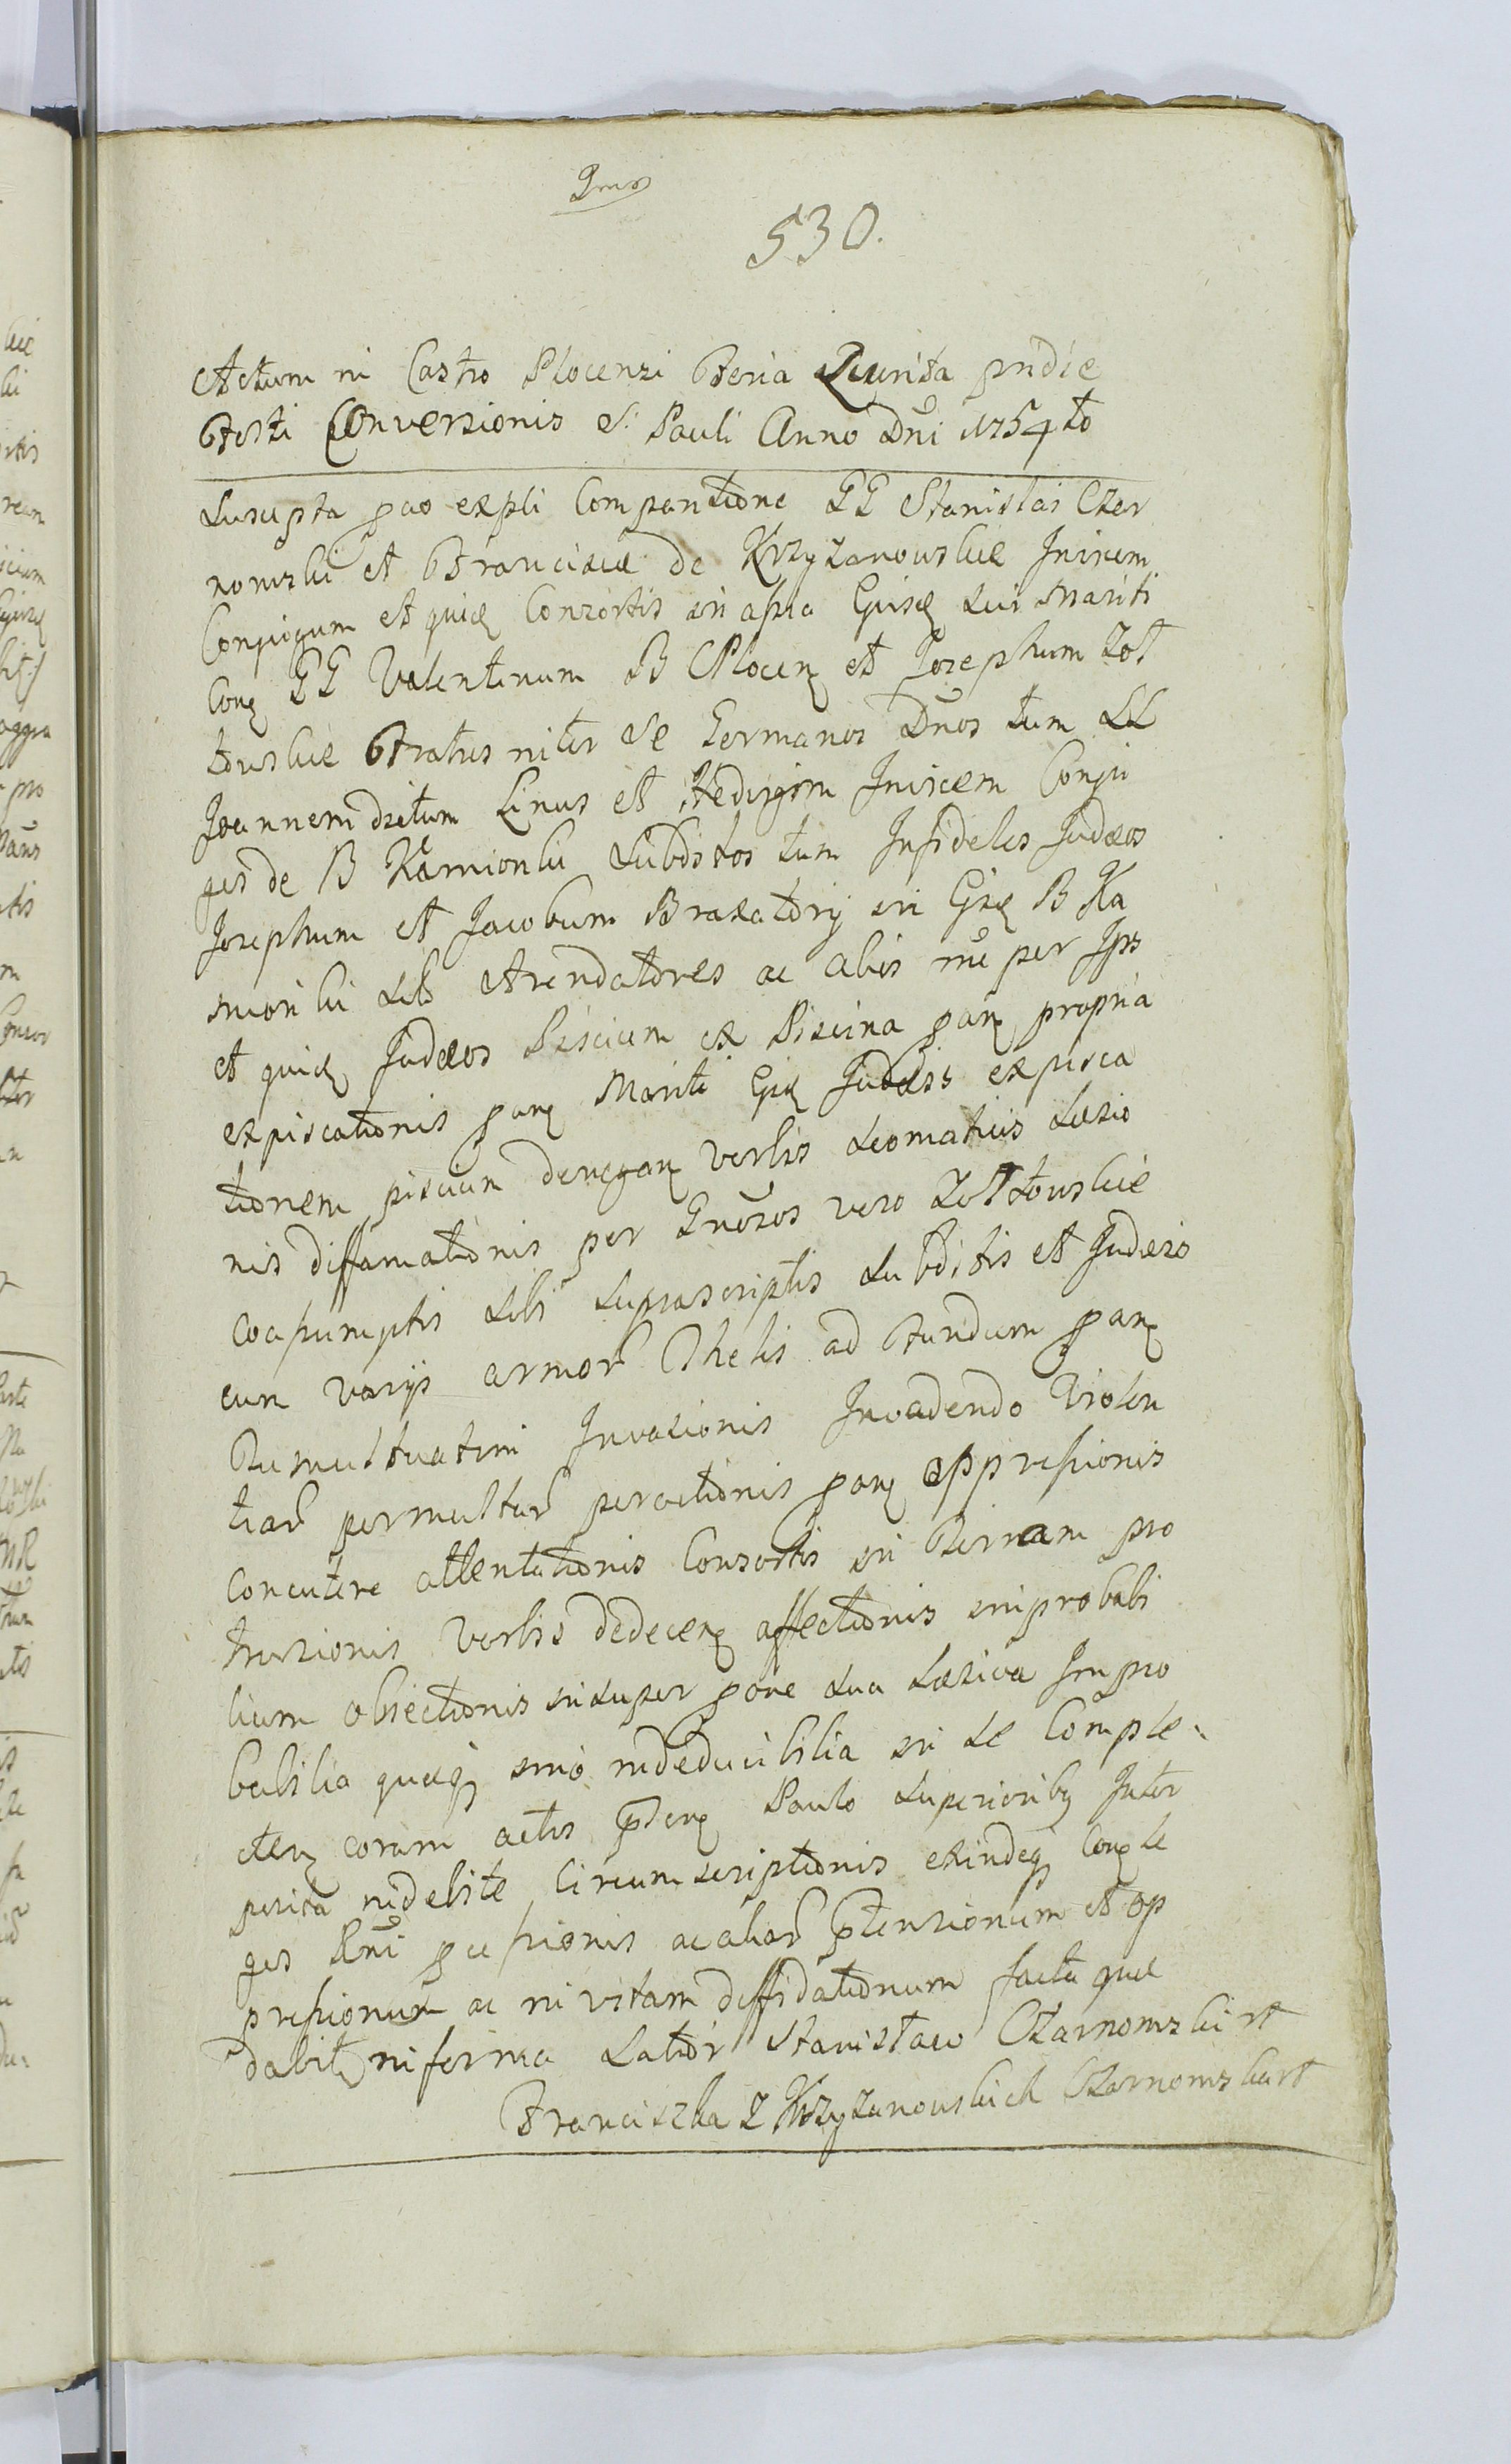 530.
Actum in Castro Plocensi Feria Quinta pridie
Festi Conversionis S. Pauli Anno Dni 1754to
Suscepta pao expli Comparitione GG Stanislai Czar
nomski et Franciscæ de Krzyzanowskie Invicem
Conjugum et quidę Consortis in aßia Ejusdę sui Mariti
Conę GG Valentinum B Plocenę et Josephum Zoł
towskie Fratres inter se Germanos Dnos tum LL
Joannem dictum Linus et Hedvigim Invicem Conju
ges de B Kamionki Subditos tum Infideles Judæos
Josephum et Jacobum Braxatorij in Ejsdę B Ka
mionki sub Arendatores ac alios me per Ipss
et quidę Judæos Piscium ex Piscina panę propria
expiscationis panę Mariti Ejsdę Judæis expisca
tionem piscium deneganę verbis scomaticis Læsio
nis diffamationis per Gnosos vero Zołtowskie
coaßumptis sibi suprascriptis subditis et Judæis
cum varijs armor Thelis ad Fundum panę
Tumultuatim Invasionis Invadendo Violen
tiar permultar peractionis panę oppreßionis
concutere attentationis Consortis in Terram pro
trusionis verbis dedecenę affectionis improbabi
lium obiectionis insuper pone sua Læsiva Impro
babilia quæq imo indeducibilia in se Comple
cten coram actis ptenę Paulo superiorib Inter
posita indebite Circumscriptionis exindeq Conę Le
ges Rni peeßionis ac aliar ptensionum et op
preßionum ac in vitam diffidationum facta quæ
dabit in forma Latior Stanisław Czarnomski rt
Franciszka Z Krzyzanowskich Czarnomska rt